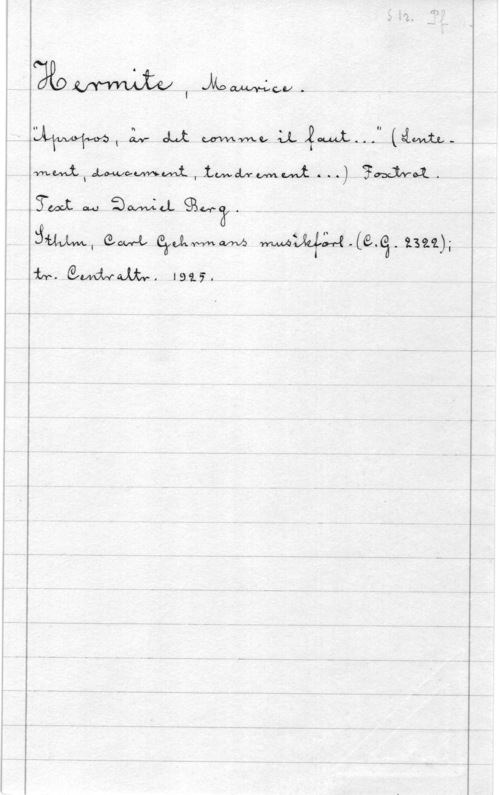 S 12. Pf
Hermite, Maurice.
"Apropos, är det comme il faut..." (Lente-
ment, doucement, tendrement ...) Foxtrot.
Text av Daniel Berg.
Sthlm, Carl Gehrmans musikförl. (C.G. 2322);
tr. Centraltr. 1925.